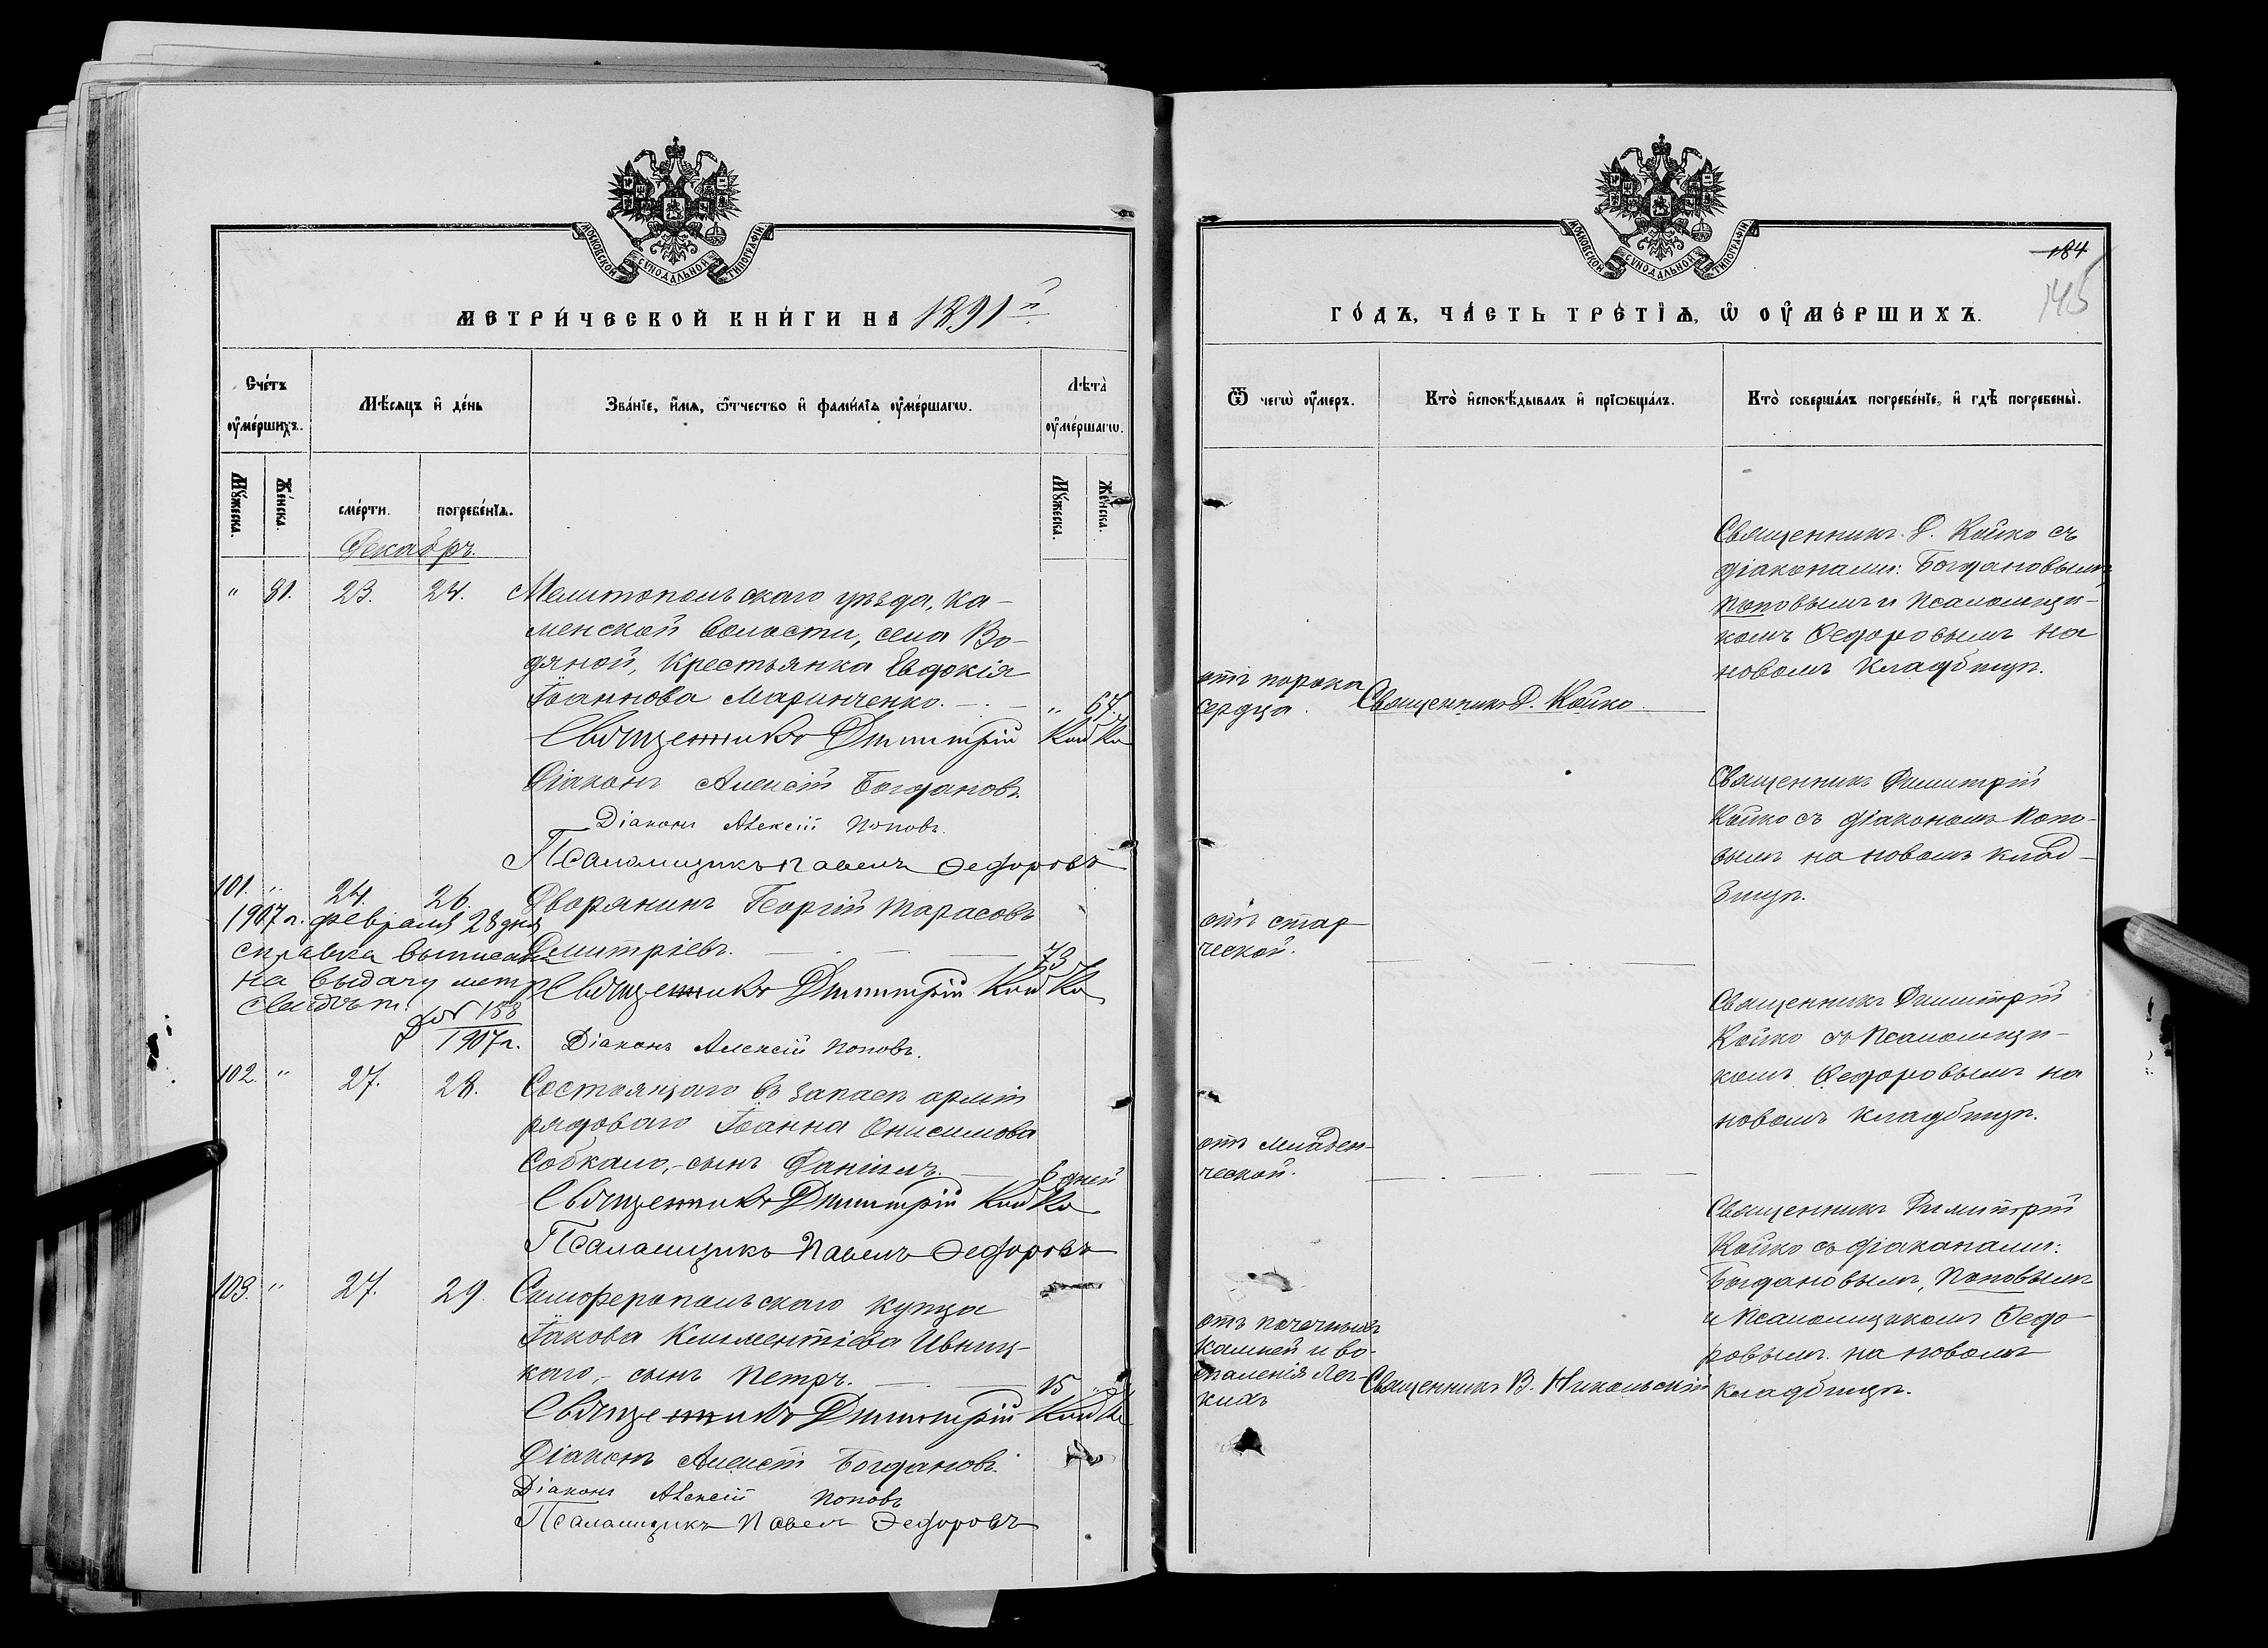 МОСКОВСКОЙ СѴНОДАЛЬНОЙ ТИПОГРАФІИ
МЕТРИ́ЧЕСКОЙ КНИ́ГИ НА 1891 й
Сче́тъ оу҆ме́ршихъ.
Мѣ́сяцъ и҆ де́нь
Зва́нїе, и҆́мѧ, ѻ҆́тчество и҆ фами́лїѧ оу҆ме́ршагѡ.
Лѣта̀ оу҆ме́ршагѡ.
Мꙋ́жеска.
Же́нска.
сме́рти.
погребе́нїѧ.
Мꙋ́жеска.
Же́нска.
Декабрь.
" 81. 23. 24. Мелитопольскаго уѣзда, Ка-
менской волости, села Во-
дяной, крестьянка Евдокія
Іоаннова Маринченко. — " 67.
Священникъ Димитрій Койко
Діаконъ Алексій Богдановъ.
Діаконъ Алексій Поповъ.
Псаломщикъ Павелъ Ѳедоровъ
101. " 24. 26. Дворянинъ Георгій Тарасовъ
Дмитріевъ. — 73
1907 г. февраля 28 дня
справка выписана
на выдачу метр
свидѣт.
№ 158
1907 г.
Священникъ Димитрій Койко
Діаконъ Алексій Поповъ.
102. " 27. 28. Состоящаго въ запасѣ арміи
рядоваго Іоанна Онисимова
Собкало, - сынъ Даніилъ. — 6 дней
Священникъ Димитрій Койко
Псаломщикъ Павелъ Ѳедоровъ
103. " 27. 29. Симферопольскаго купца
Іакова Климентіева Ивниц-
каго, - сынъ Петръ. — 15 "
Священникъ Димитрій Койко
Діаконъ Алексій Богдановъ.
Діаконъ Алексій Поповъ
Псаломщикъ Павелъ Ѳедоровъ
МОСКОВСКОЙ СѴНОДАЛЬНОЙ ТИПОГРАФІИ
184
145
ГО́ДЪ, ЧА́СТЬ ТРЕ́ТЇѦ, Ѡ҆ ОУ҆МЕ́РШИХЪ.
Ѿ чегѡ̀ оу҆́меръ.
Кто̀ и҆сповѣ́дывалъ и҆ прїѡбща́лъ.
Кто̀ соверша́лъ погребе́нїе, и҆ гдѣ̀ погребены̀.
отъ порока
сердца.
Священникъ Д. Койко.
Священникъ Д. Койко съ
діаконами: Богдановымъ,
Поповымъ и псаломщи-
комъ Ѳедоровымъ на
новомъ кладбищѣ.
отъ стар-
ческой.
Священникъ Димитрій
Койко съ діакономъ Попо-
вымъ на новомъ клад-
бищѣ.
отъ младен-
ческой.
Священникъ Димитрій
Койко съ псаломщи-
комъ Ѳедоровымъ на
новомъ кладбищѣ.
отъ печеныхъ
камней и во-
спаленія лег-
кихъ
Священникъ В. Никольскій
Священникъ Димитрій
Койко съ діаконами:
Богдановымъ, Поповымъ
и псаломщикомъ Ѳедо-
ровымъ на новомъ
кладбищѣ.